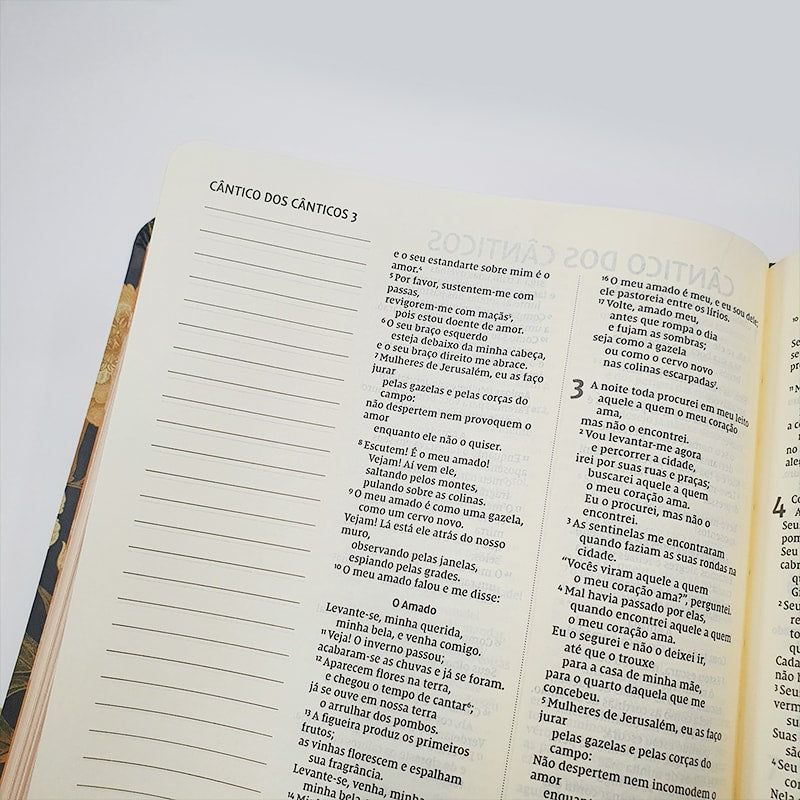 CÂNTICO DOS CÂNTICOS 3
e o seu estandarte sobre mim é o
amor.
5 Por favor, sustentem-me com
passas,
revigorem-me com maçãs,
pois estou doente de amor.
6 O seu braço esquerdo
esteja debaixo da minha cabeça,
e o seu braço direito me abrace.
7 Mulheres de Jerusalém, eu as faço
jurar
pelas gazelas e pelas corças do
campo:
não despertem nem provoquem o
amor
enquanto ele não o quiser.
8 Escutem! É o meu amado!
Vejam! Aí vem ele,
saltando pelos montes,
pulando sobre as colinas.
9 O meu amado é como uma gazela,
como um cervo novo.
Vejam! Lá está ele atrás do nosso
muro,
observando pelas janelas,
espiando pelas grades.
10 O meu amado falou e me disse:
O Amado
Levante-se, minha querida,
minha bela, e venha comigo.
11 Veja! O inverno passou;
acabaram-se as chuvas e já se foram.
12 Aparecem flores na terra,
e chegou o tempo de cantar;
já se ouve em nossa terra
o arrulhar dos pombos.
13 A figueira produz os primeiros
frutos;
as vinhas florescem e espalham
sua fragrância.
Levante-se, venha, minha
minha bela
16 O meu amado é meu, e eu sou dele;
ele pastoreia entre os lírios.
17 Volte, amado meu,
antes que rompa o dia
e fujam as sombras;
seja como a gazela
ou como o cervo novo
nas colinas escarpadas.
3 A noite toda procurei em meu leito
aquele a quem o meu coração
ama,
mas não o encontrei.
2 Vou levantar-me agora
e percorrer a cidade,
irei por suas ruas e praças;
buscarei aquele a quem
o meu coração ama.
Eu o procurei, mas não o
encontrei.
3 As sentinelas me encontraram
quando faziam as suas rondas na
cidade.
"Vocês viram aquele a quem
o meu coração ama?", perguntei.
4 Mal havia passado por elas,
quando encontrei aquele a quem
o meu coração ama.
Eu o segurei e não o deixei ir,
até que o trouxe
para a casa de minha mãe,
para o quarto daquela que me
concebeu.
5 Mulheres de Jerusalém, eu as faço
jurar
pelas gazelas e pelas corças do
campo:
Não despertem nem incomodem o
amor
4